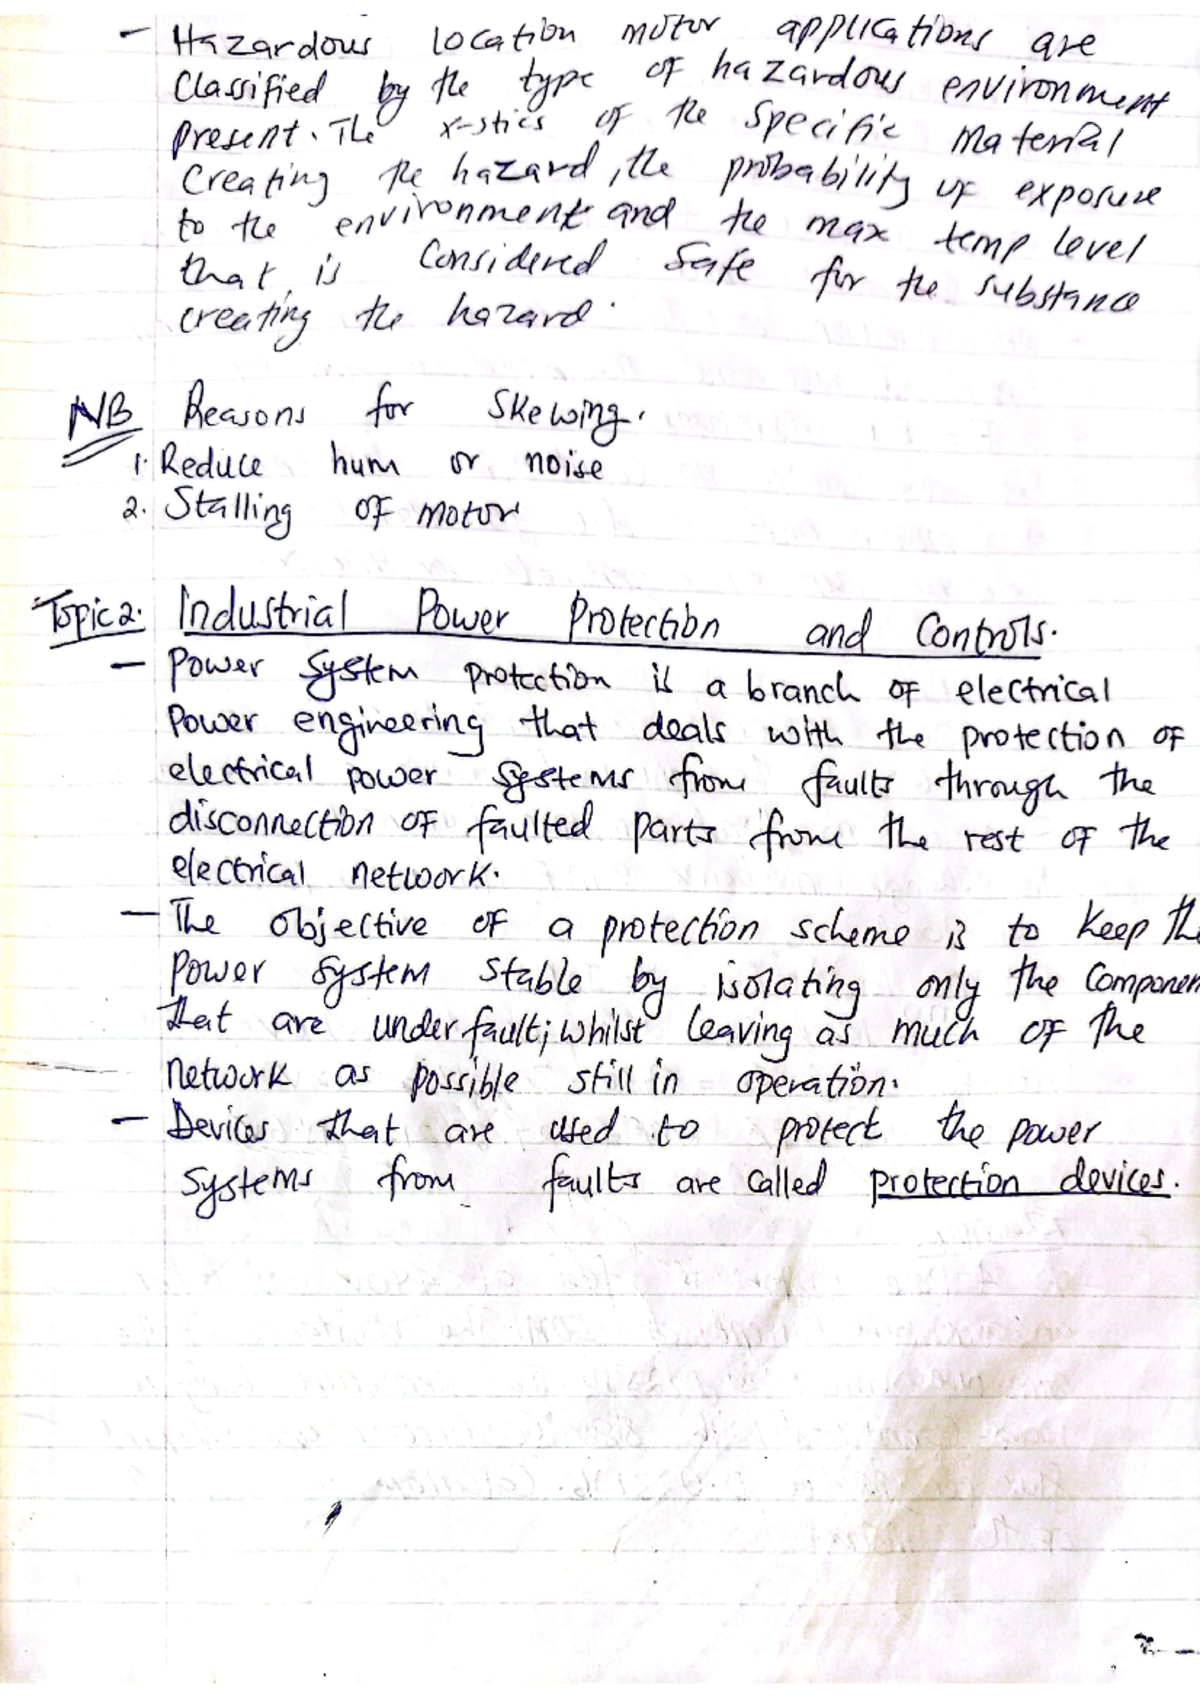 - Hazardous location motor applications are
Classified by the type of hazardous environment
present. The x-stics of the specific material
Creating the hazard, the probability of exposure
to the environment and the max temp level
that is Considered Safe for the substance
creating the hazard.
NB Reasons for Skewing.
1. Reduce hum or noise
2. Stalling of motor
Topic 2. Industrial Power Protection and Controls.
- Power system protection is a branch of electrical
Power engineering that deals with the protection of
electrical power systems from faults through the
disconnection of faulted parts from the rest of the
electrical network.
- The objective of a protection scheme is to keep the
Power system stable by isolating only the Componen
that are under fault; whilst leaving as much of the
network as possible still in operation.
- Devices that are used to protect the power
systems from faults are called protection devices.